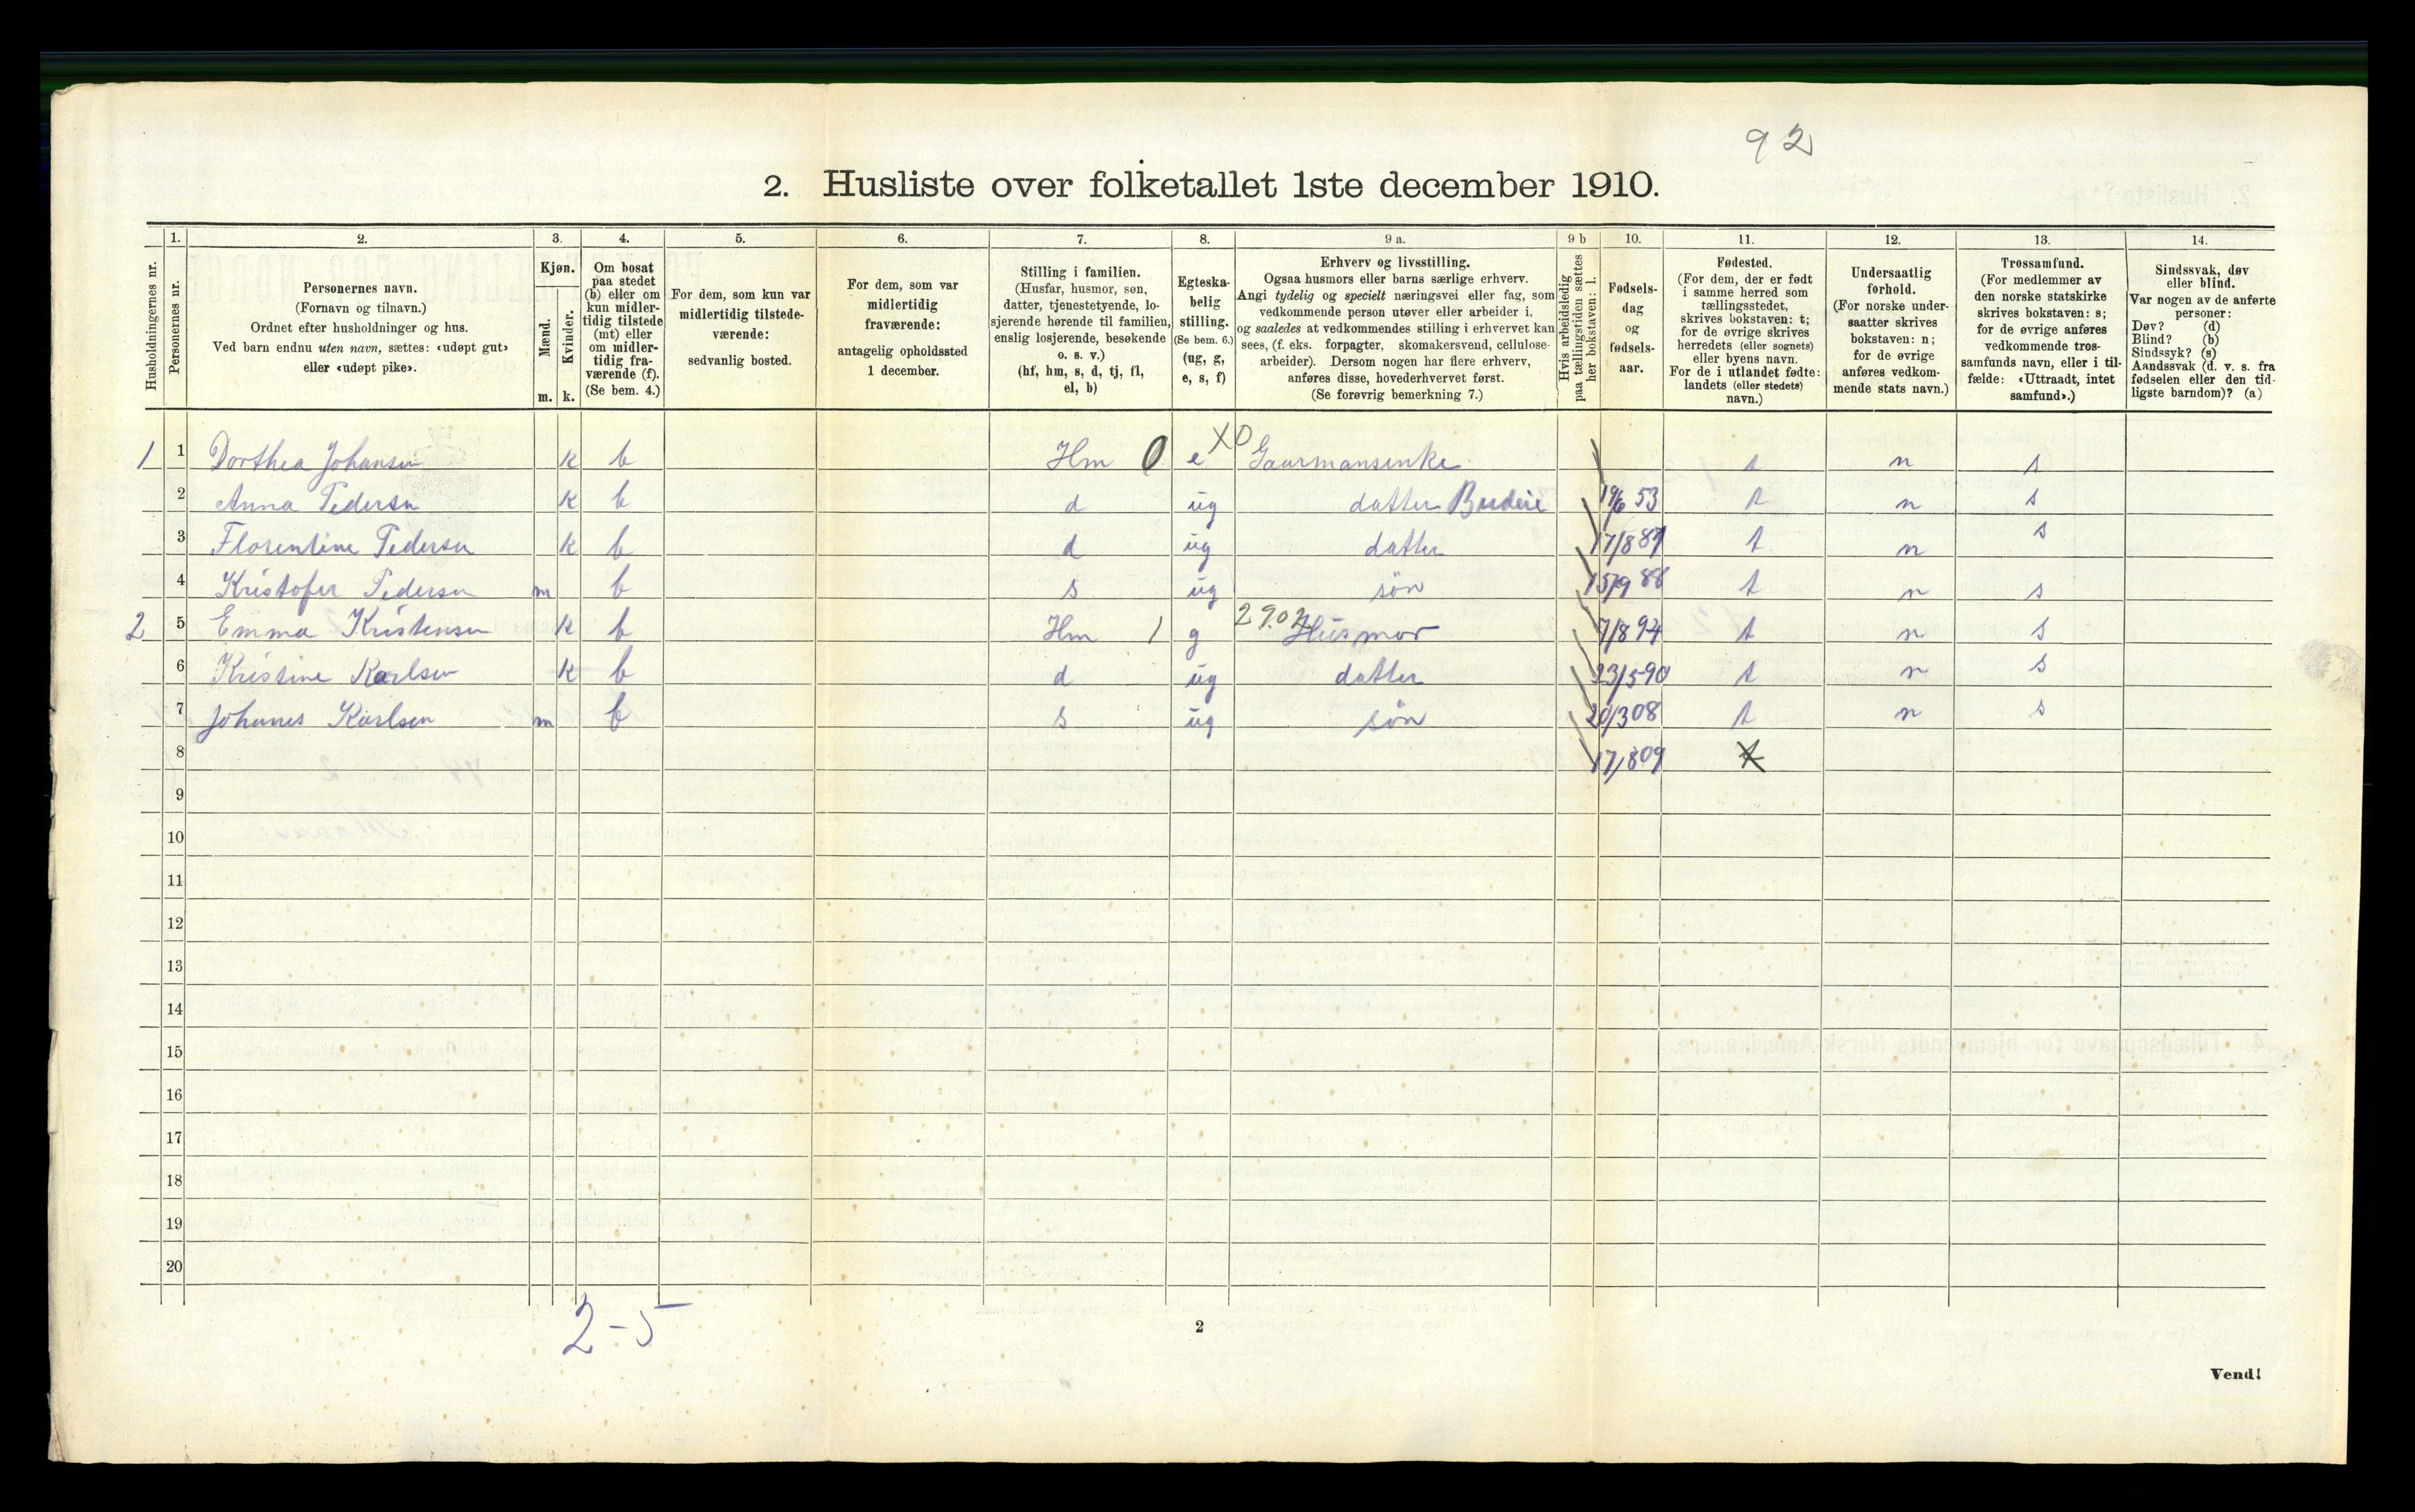 92
2. Husliste over folketallet 1ste december 1910.
Husholdningernes nr.
1. Personernes nr.
2. Personernes navn. (Fornavn og tilnavn.) Ordnet efter husholdninger og hus. Ved barn endnu uten navn, sættes: «udøpt gut» eller «udøpt pike».
3. Kjøn. Mænd. m. Kvinder. k.
4. Om bosat paa stedet (b) eller om kun midlertidig tilstede (mt) eller om midlertidig fraværende (f). (Se bem. 4.)
5. For dem, som kun var midlertidig tilstedeværende: sedvanlig bosted.
6. For dem, som var midlertidig fraværende: antagelig opholdssted 1 december.
7. Stilling i familien. (Husfar, husmor, søn, datter, tjenestetyende, losjerende hørende til familien, enslig losjerende, besøkende o. s. v.) (hf, hm, s, d, tj, fl, el, b)
8. Egteskabelig stilling. (Se bem. 6.) (ug, g, e, s, f)
9 a. Erhverv og livsstilling. Ogsaa husmors eller barns særlige erhverv. Angi tydelig og specielt næringsvei eller fag, som vedkommende person utøver eller arbeider i, og saaledes at vedkommendes stilling i erhvervet kan sees, (f. eks. forpagter, skomakersvend, cellulosearbeider). Dersom nogen har flere erhverv, anføres disse, hovederhvervet først. (Se forøvrig bemerkning 7.)
9 b Hvis arbeidsledig paa tællingstiden sættes her bokstaven: l.
10. Fødselsdag og fødselsaar.
11. Fødested. (For dem, der er født i samme herred som tællingsstedet, skrives bokstaven: t; for de øvrige skrives herredets (eller sognets) eller byens navn. For de i utlandet fødte: landets (eller stedets) navn.)
12. Undersaatlig forhold. (For norske undersaatter skrives bokstaven: n; for de øvrige anføres vedkommende stats navn.)
13. Trossamfund. (For medlemmer av den norske statskirke skrives bokstaven: s; for de øvrige anføres vedkommende trossamfunds navn, eller i tilfælde: «Uttraadt, intet samfund».)
14. Sindssvak, døv eller blind. Var nogen av de anførte personer: Døv? (d) Blind? (b) Sindssyk? (s) Aandssvak (d. v. s. fra fødselen eller den tidligste barndom)? (a)
1 1 Dorthea Johansen k b Hm 0 e X0 Gaurmansenke t n s
2 Anna Pedersn k b d ug datter Budeie 19/6 53 t n s
3 Florentine Pedersen k b d ug datter 17/8 89 t n s
4 Kristofer Pedersen m b s ug sön 15/9 88 t n s
2 5 Emma Kristensen k b Hm 1 g Husmor 7/8 94 t n s
6 Kristine Karlsen k b d ug datter 23/5 90 t n s
7 Johanes Karlsen m b s ug sön 20/3 08 t n s
8 17/8 09 t
9
10
11
12
13
14
15
16
17
18
19
20
2-5
2
Vend!